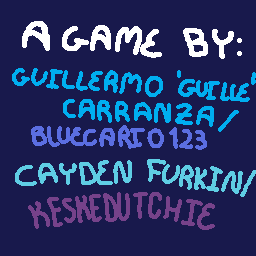 A GAME BY:
GUILLERMO 'GUILLE'
CARRANZA/
BLUECARIO123
CAYDEN FURKIN/
KESKEDUTCHIE